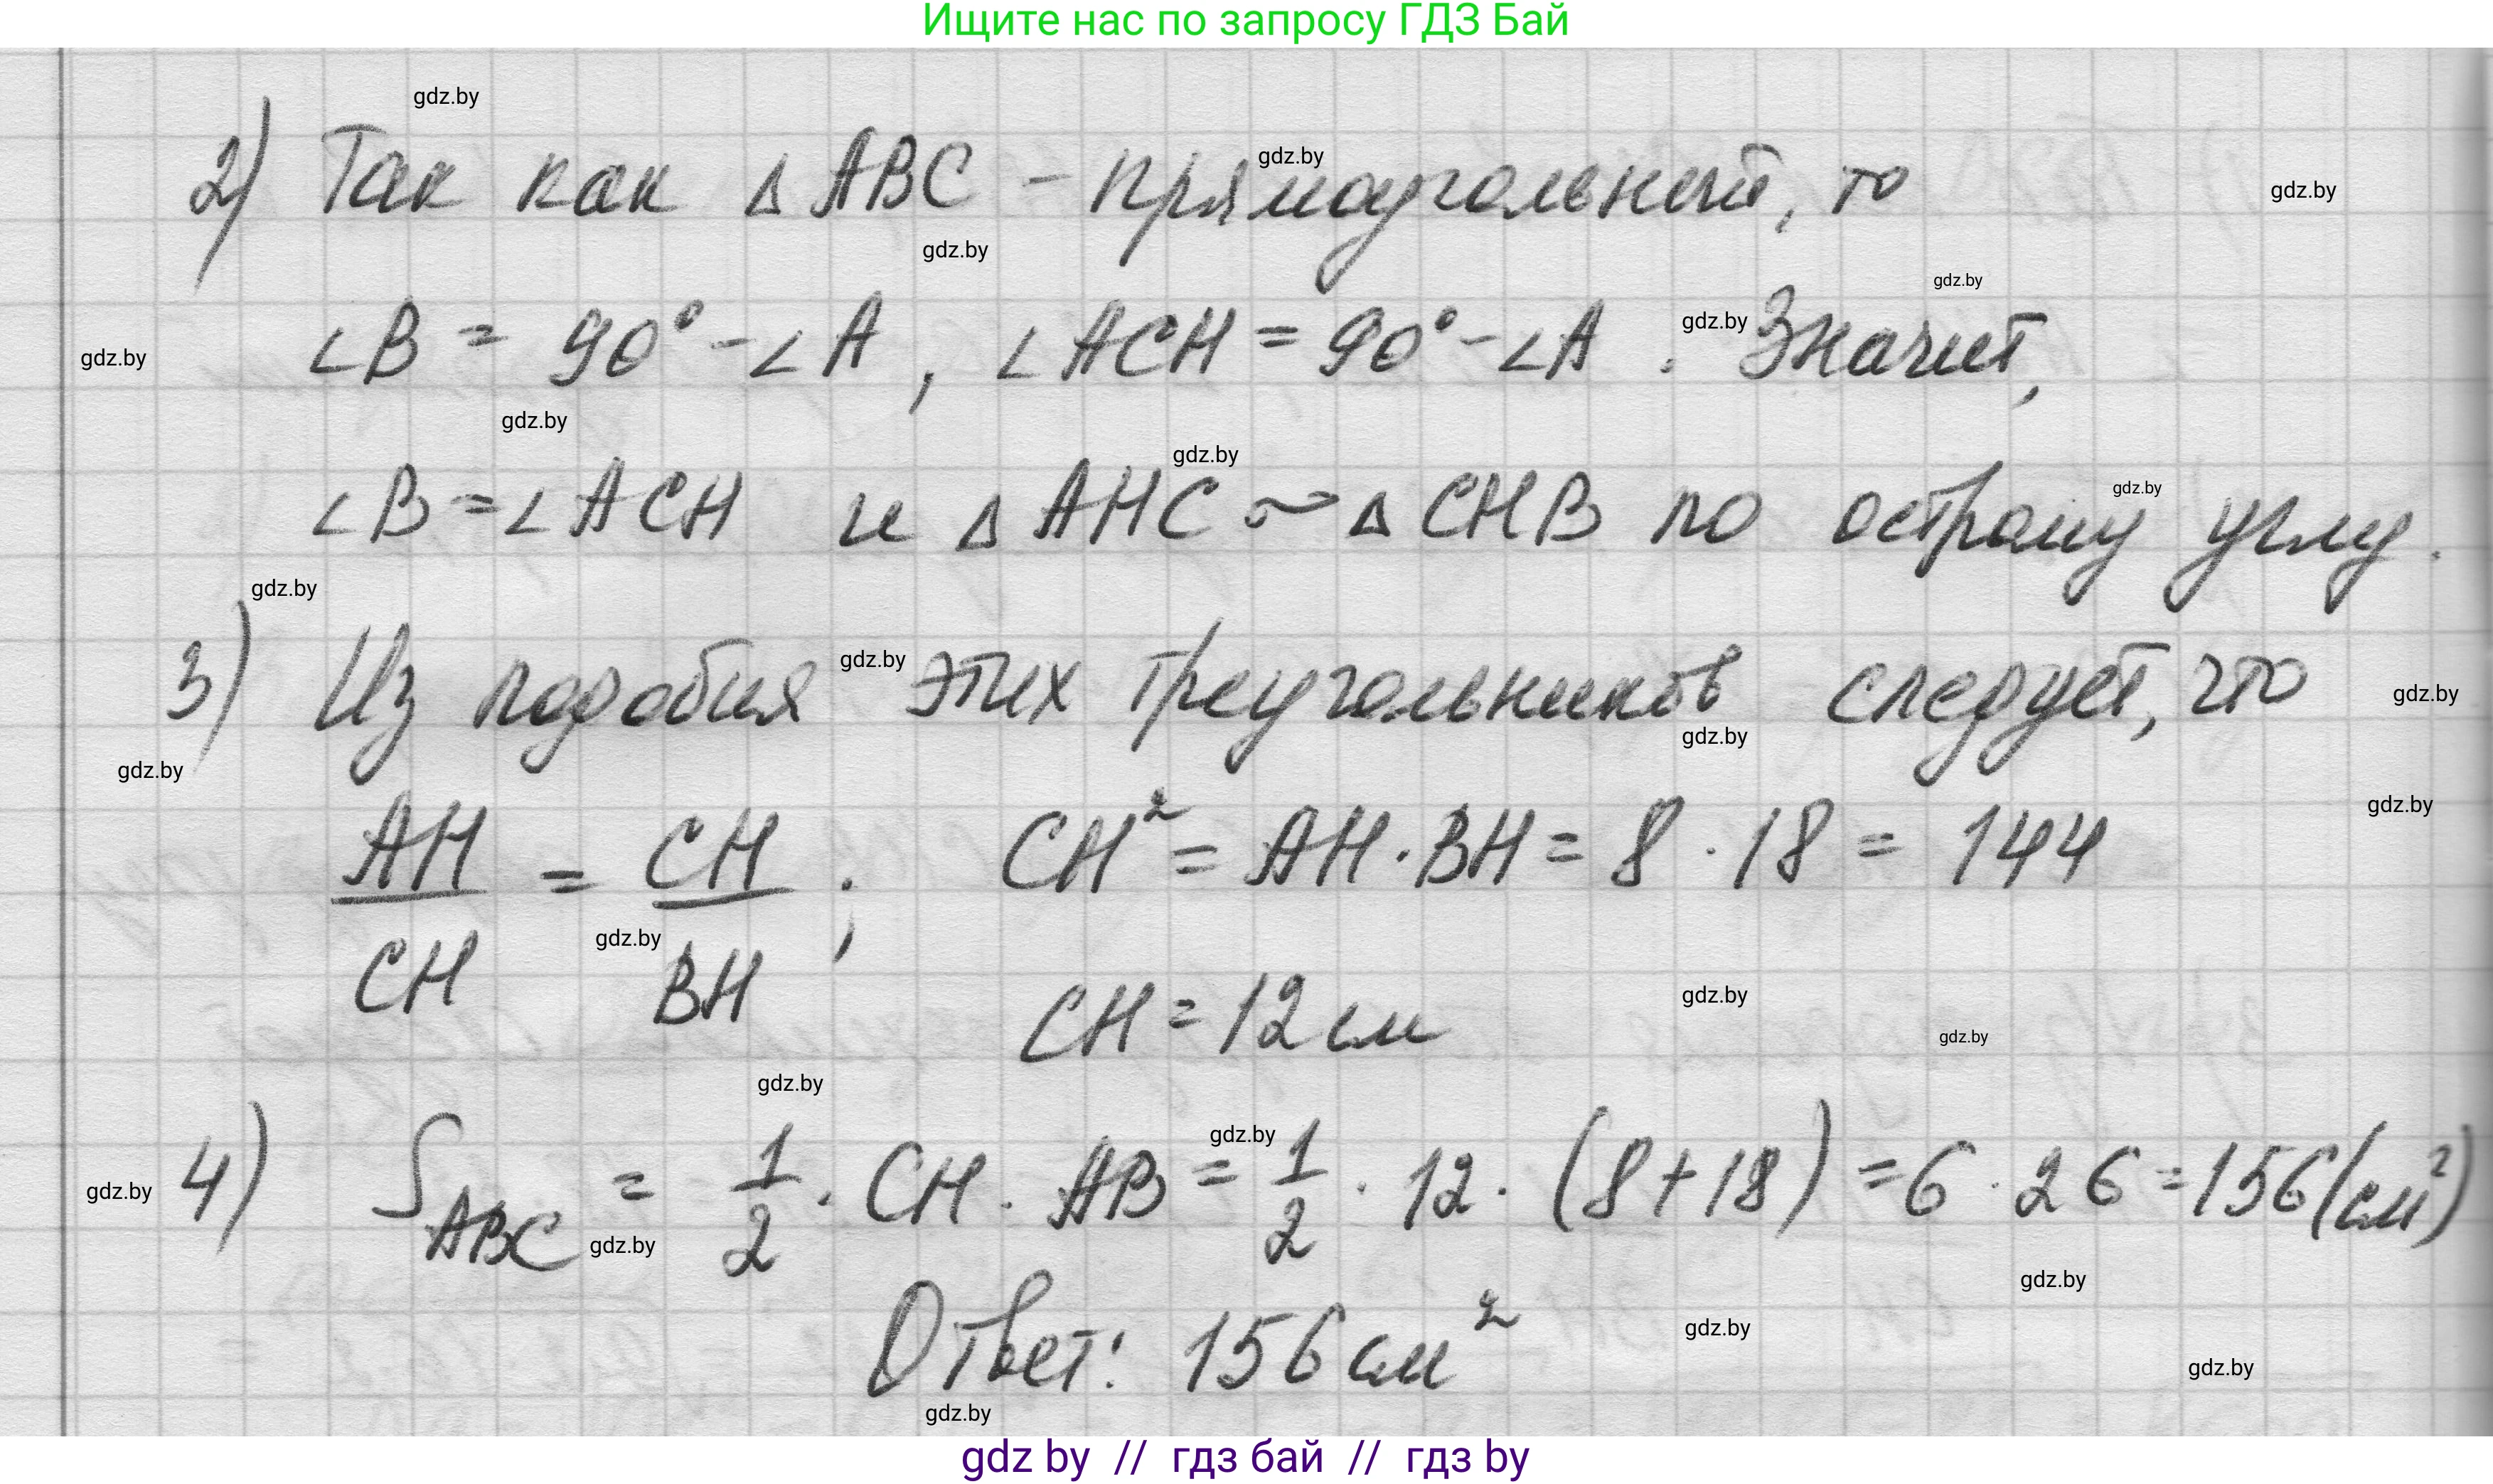 Ищите нас по запросу ГДЗ Бай
gdz.by
2) Так как ΔABC - прямоугольный, то
gdz.by
gdz.by
gdz.by
gdz.by
∠B = 90° - ∠A, ∠ACH = 90° - ∠A. Значит,
gdz.by
gdz.by
gdz.by
gdz.by
∠B = ∠ACH и ΔAHC ~ ΔCHB по острому углу.
gdz.by
gdz.by
3) Из подобия этих треугольников следует, что
gdz.by
gdz.by
gdz.by
gdz.by
AH/CH = CH/BH; CH² = AH·BH = 8·18 = 144
gdz.by
gdz.by
CH = 12 см
gdz.by
gdz.by
gdz.by
4) S_ABC = 1/2 · CH · AB = 1/2 · 12 · (8+18) = 6·26 = 156 (см²)
gdz.by
gdz.by
gdz.by
gdz.by
Ответ: 156 см²
gdz.by
gdz.by
gdz.by
gdz by // гдз бай // гдз by